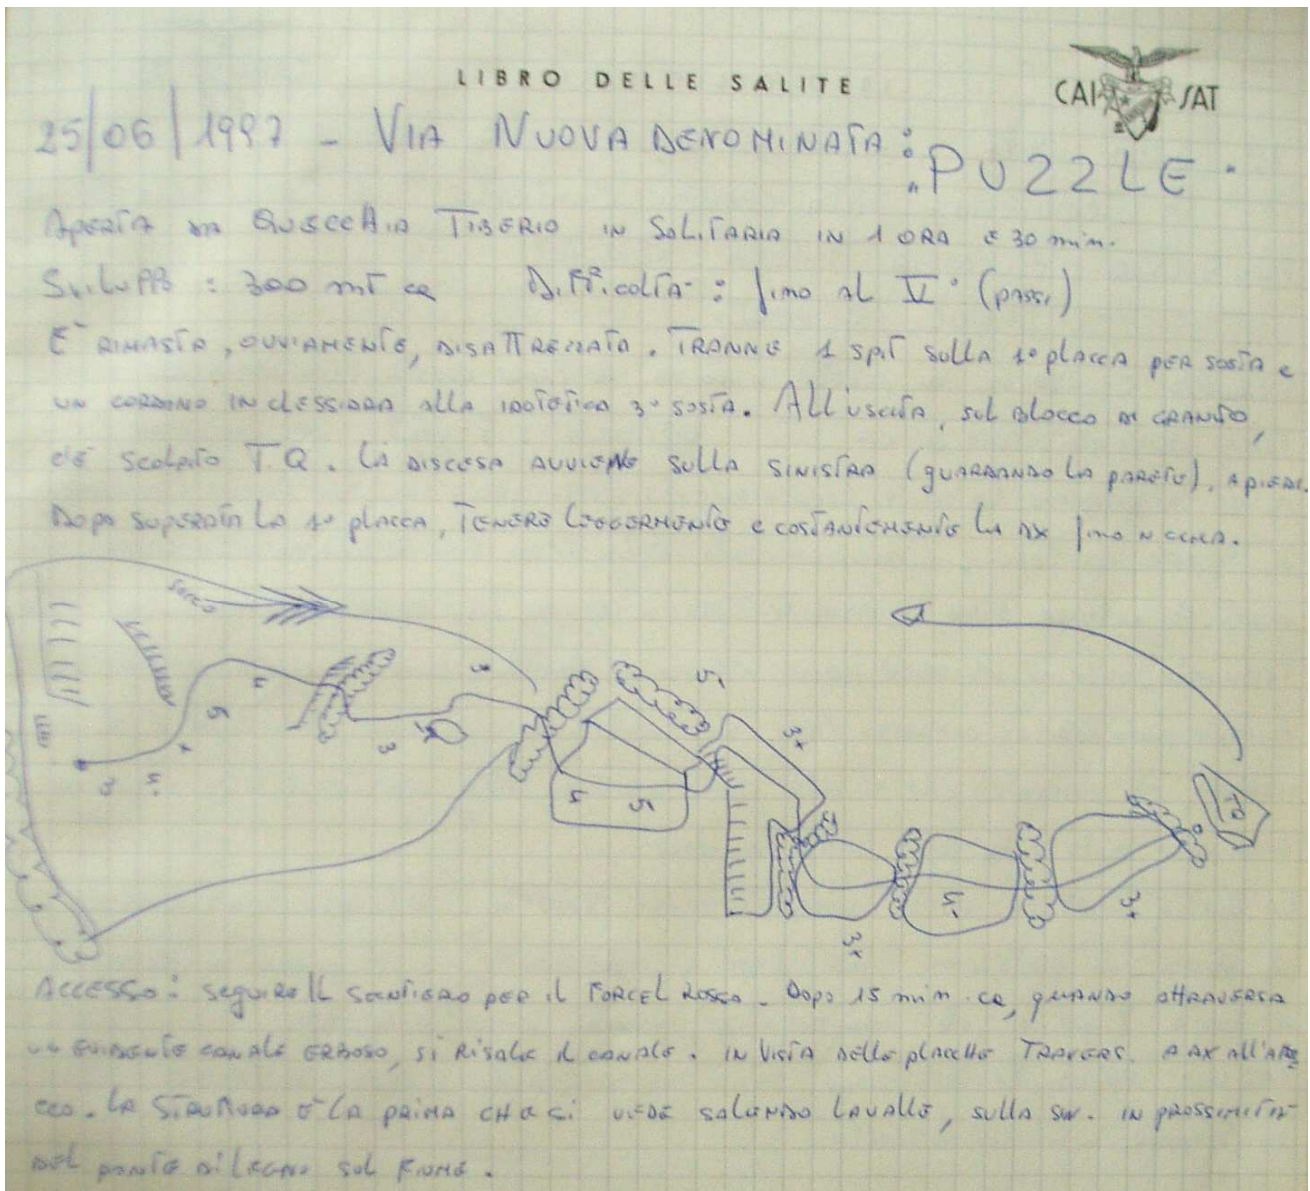 LIBRO DELLE SALITE
CAI SAT
25/06/1997 - VIA NUOVA DENOMINATA:
"PUZZLE"
APERTA DA QUECCHIA TIBERIO IN SOLITARIA IN 1 ORA E 30 min.
SVILUPPO: 300 mT ca DIFFICOLTA': fino al V° (passi)
E' RIMASTA, OVVIAMENTE, DISATTREZZATA. TRANNE 1 SPIT SULLA 1° PLACCA PER SOSTA e
UN CORDINO IN CLESSIDRA ALLA IPOTETICA 3° SOSTA. ALL'USCITA, SUL BLOCCO DI GRANITO,
C'E' SCOLPITO T.Q. LA DISCESA AVVIENE SULLA SINISTRA (GUARDANDO LA PARETE), A PIEDI.
DOPO SUPERATA LA 1° PLACCA, TENERE LEGGERMENTE e COSTANTEMENTE LA DX fino in CIMA.
3
4-
+
5
4
3
3
4
5-
5-
3+
3+
5-
3+
TQ
ACCESSO: SEGUIRE IL SENTIERO PER IL FORCEL ROSSO - DOPO 15 min ca, QUANDO ATTRAVERSA
UN EVIDENTE CANALE ERBOSO, SI RISALE IL CANALE. IN VISTA DELLE PLACCHE TRAVERS. A DX ALL'ATTAC
CO. LA STRUTTURA E' LA PRIMA CHE SI VEDE SALENDO LA VALLE, SULLA SIN. IN PROSSIMITA'
DEL PONTE DI LEGNO SUL FIUME.